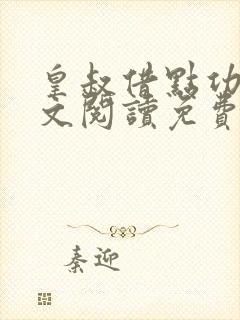 皇叔借點功
文閱讀免費
秦迎